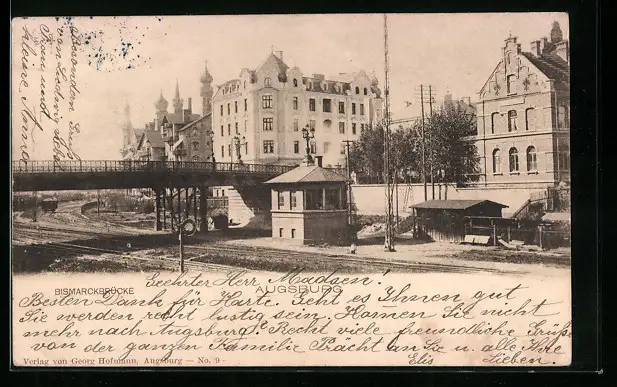 Besonderen Gruß
von Ludwig Ihr
Freund
kleine Anna
BISMARCKBRÜCKE
AUGSBURG
Geehrter Herr Madsen!
Besten Dank für Karte. Geht es Ihnen gut
Sie werden recht lustig sein. Komen Sie nicht
mehr nach Augsburg? Recht viele freundliche Grüße
von der ganzen Familie Prächt an Sie u. alle Ihre
Elis Lieben.
Verlag von Georg Hofmann, Augsburg — No. 9 -